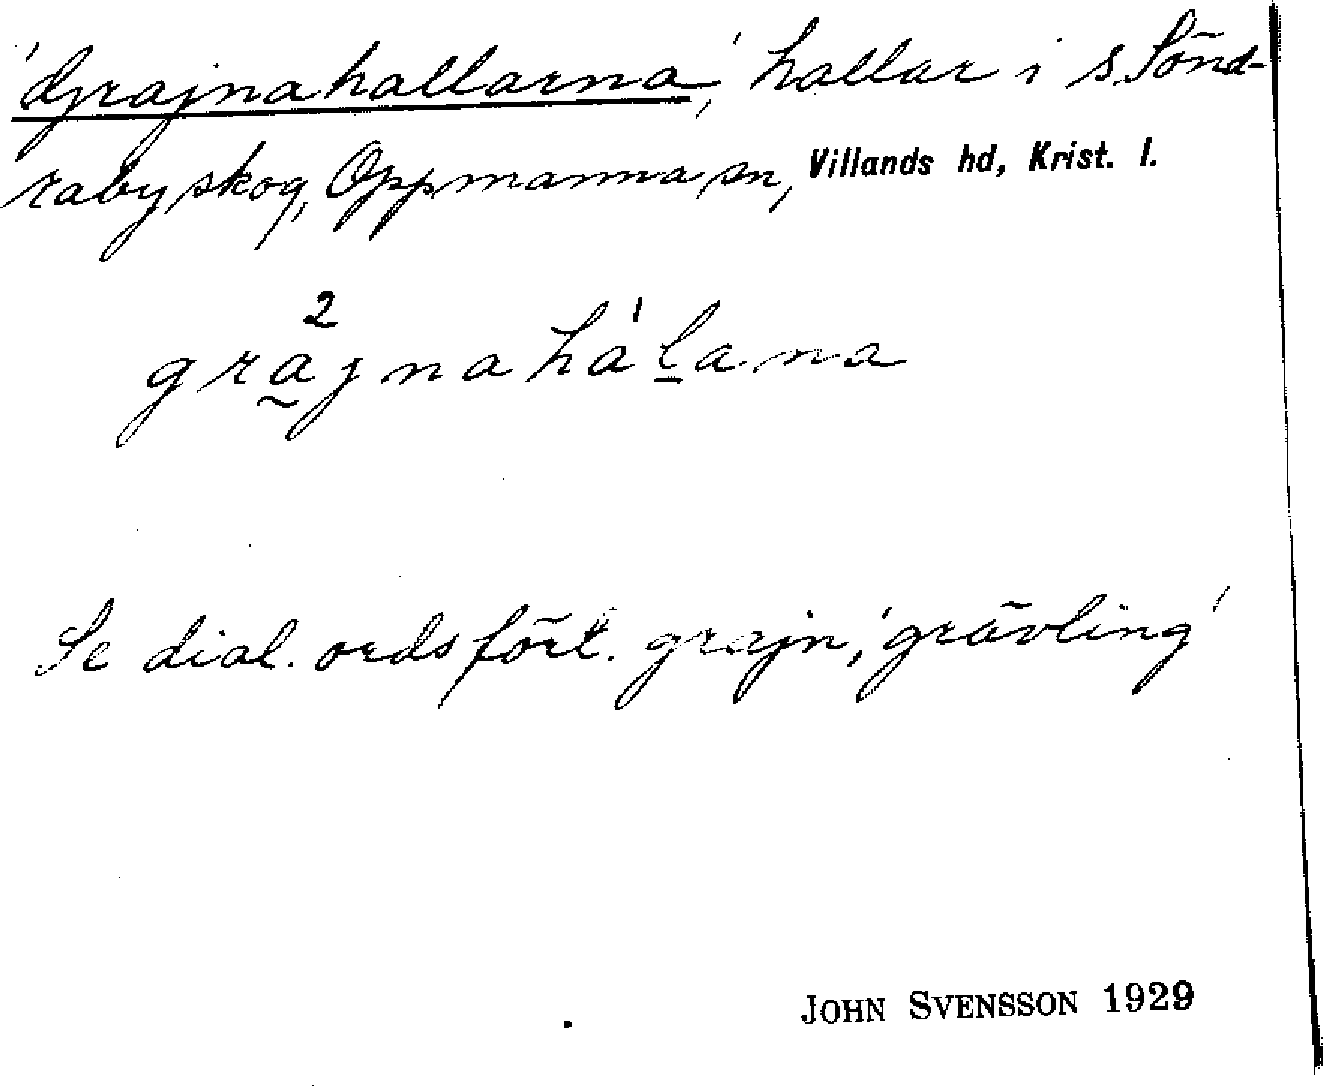 'Grajnahallarna', hallar i s. Sönd-
raby skog, Oppmanna sn, Villands hd, Krist. l.
2
grajnahálana
Se dial. ordsförl. grajn, 'grävling'
JOHN SVENSSON 1929